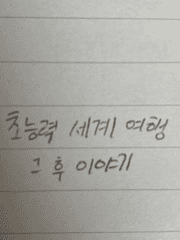 초능력 세계 여행
그 후 이야기